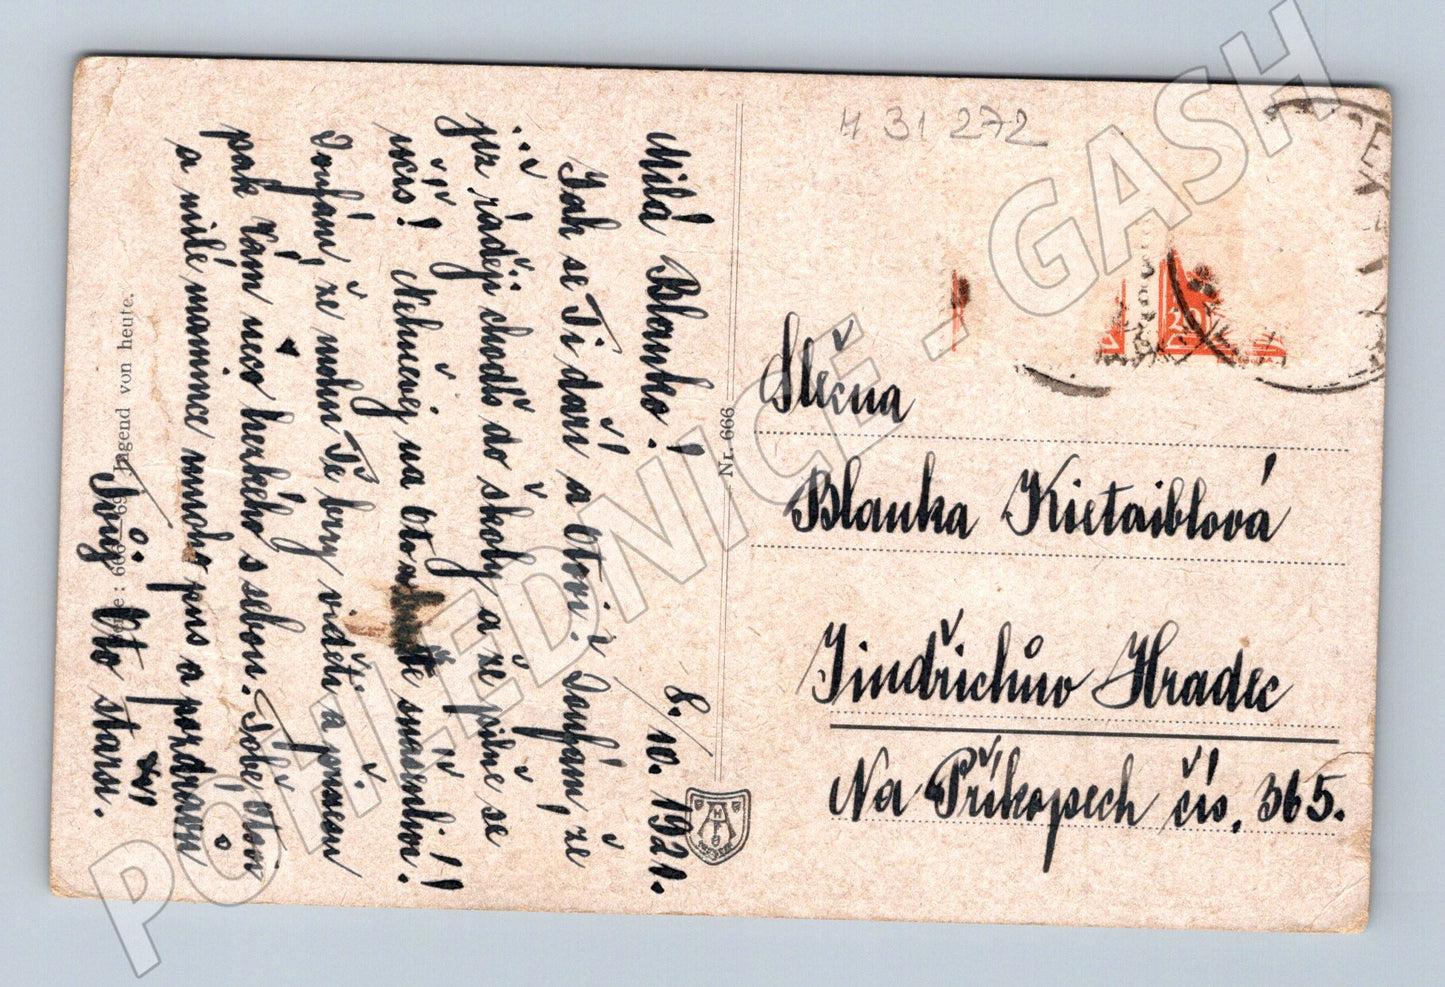 H 31 272
Milá Blanko! 8./10. 1921.
Jak se Ti daří a Otovi? Doufám, že
již ráději chodíš do školy a že pilně se
učíš! Nehněvej na
Doufám, že mohu Tě brzy viděti a přinesu
pak Vám něco hezkého s sebou. Tobě, Otovi
a milé mamince mnoho pus a pozdravů
Tvůj Oto starší.
Jugend von heute.
Nr. 666
Slečna
Blanka Kietaiblová
Jindřichův Hradec
Na Příkopech čís. 365.
POHLEDNICE - GASH